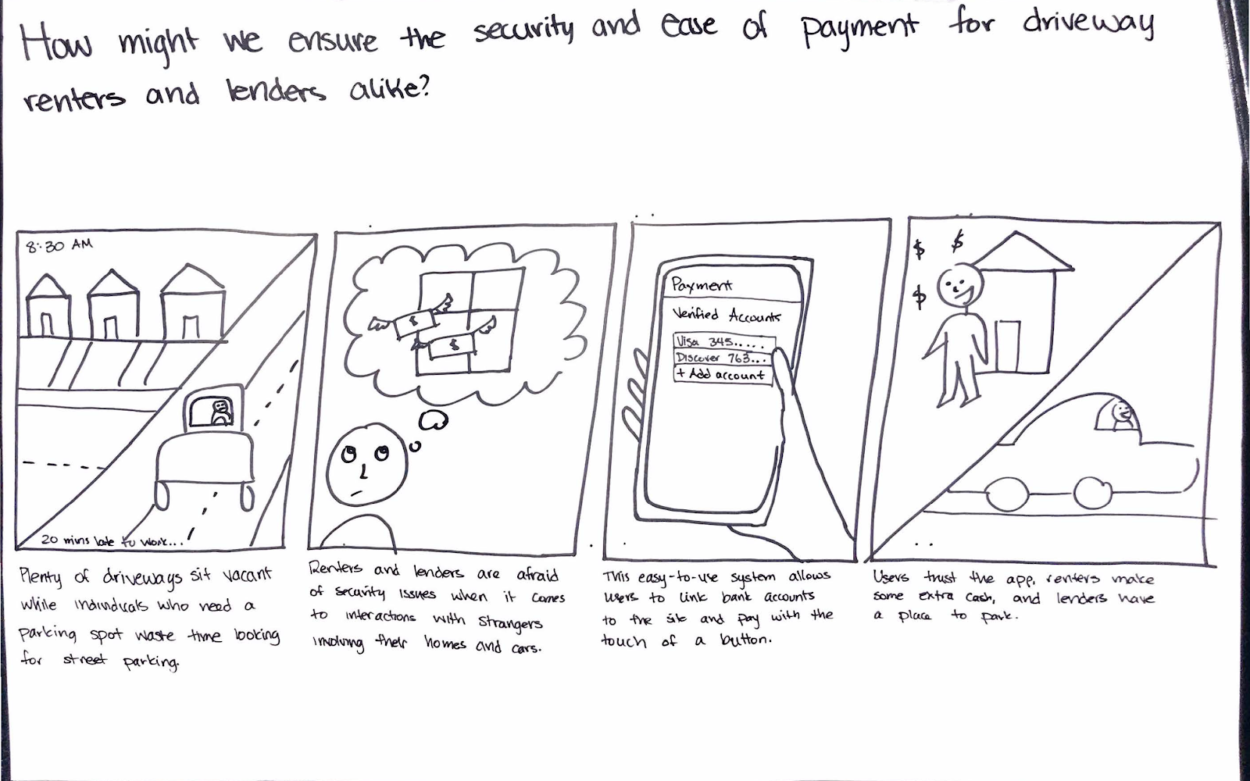 How might we ensure the security and ease of payment for driveway
renters and lenders alike?
8:30 AM
20 mins late to work...
Plenty of driveways sit vacant
while individuals who need a
parking spot waste time looking
for street parking.
$
$
Renters and lenders are afraid
of security issues when it comes
to interactions with strangers
involving their homes and cars.
Payment
Verified Accounts
Visa 345.....
Discover 763...
+ Add account
This easy-to-use system allows
users to link bank accounts
to the site and pay with the
touch of a button.
$ $
$
Users trust the app, renters make
some extra cash, and lenders have
a place to park.